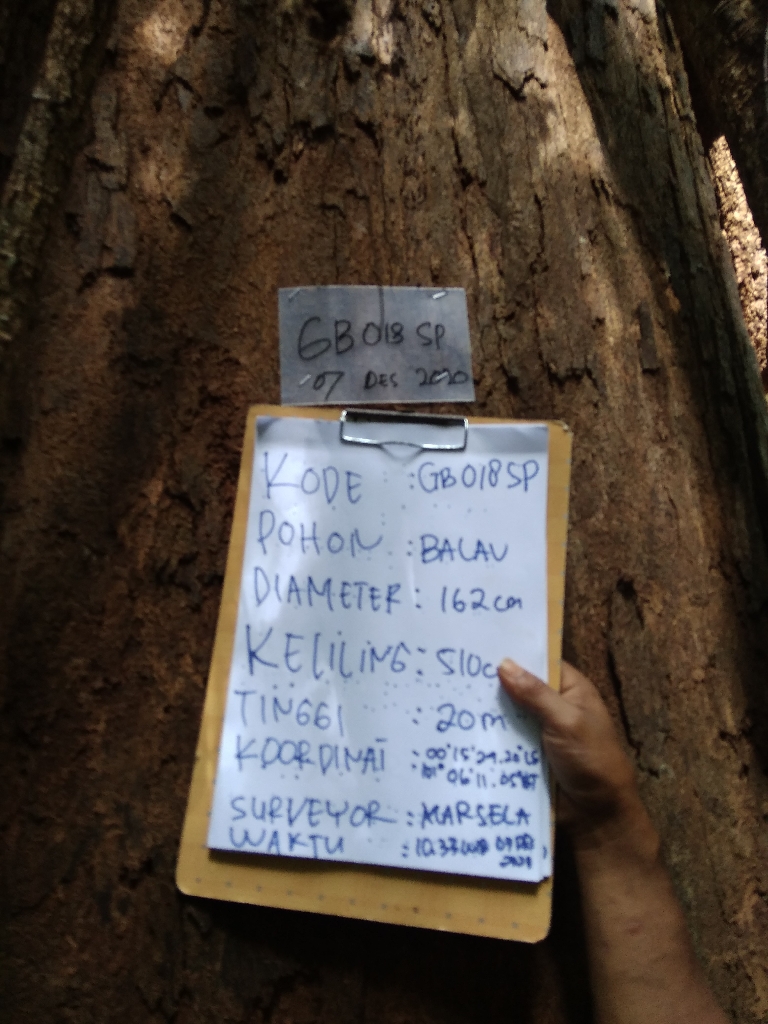 GB018 SP
07 DES 2020
KODE : GB018SP
POHON : BALAU
DIAMETER : 162cm
KELILING : 510c
TINGGI : 20m
KOORDINAT : 00°15'29.20"LS
101°06'11.05"BT
SURVEYOR : MARSELA
WAKTU : 10.37